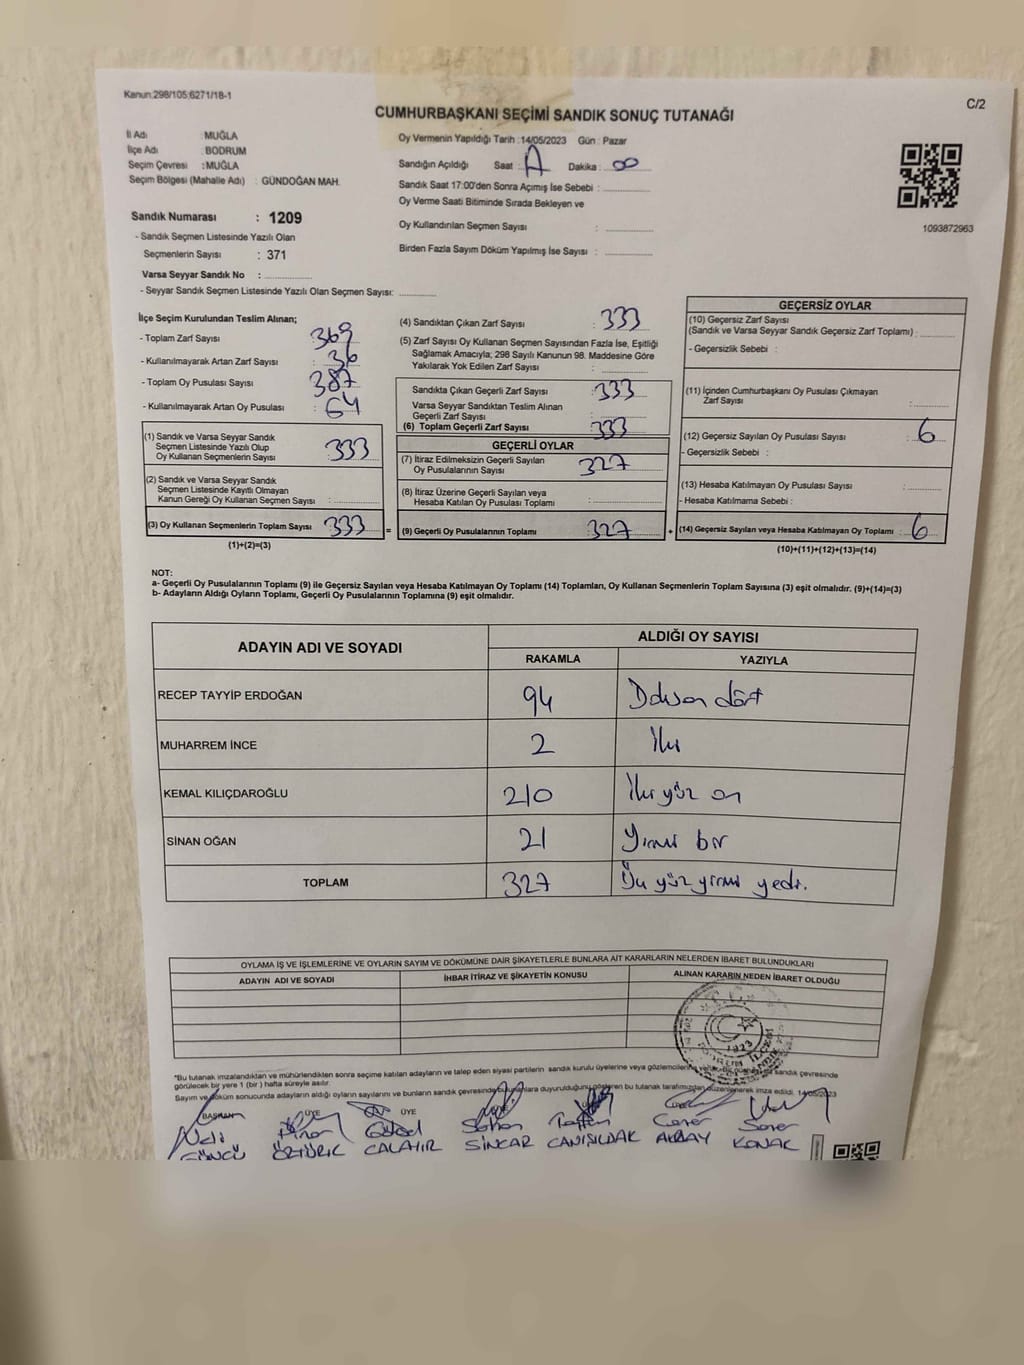 Kanun:298/105;6271/18-1
C/2
CUMHURBAŞKANI SEÇİMİ SANDIK SONUÇ TUTANAĞI
İl Adı : MUĞLA
İlçe Adı : BODRUM
Seçim Çevresi : MUĞLA
Seçim Bölgesi (Mahalle Adı) : GÜNDOĞAN MAH.
Oy Vermenin Yapıldığı Tarih :14/05/2023 Gün : Pazar
Sandığın Açıldığı Saat : Dakika : 00
Sandık Saat 17:00'den Sonra Açımış İse Sebebi :
Oy Verme Saati Bitiminde Sırada Bekleyen ve
Oy Kullandırılan Seçmen Sayısı :
Birden Fazla Sayım Döküm Yapılmış İse Sayısı :
1093872963
Sandık Numarası : 1209
- Sandık Seçmen Listesinde Yazılı Olan
Seçmenlerin Sayısı : 371
Varsa Seyyar Sandık No :
- Seyyar Sandık Seçmen Listesinde Yazılı Olan Seçmen Sayısı:
İlçe Seçim Kurulundan Teslim Alınan;
- Toplam Zarf Sayısı : 369
- Kullanılmayarak Artan Zarf Sayısı : 36
- Toplam Oy Pusulası Sayısı : 387
- Kullanılmayarak Artan Oy Pusulası : 64
(1) Sandık ve Varsa Seyyar Sandık
Seçmen Listesinde Yazılı Olup
Oy Kullanan Seçmenlerin Sayısı : 333
(2) Sandık ve Varsa Seyyar Sandık
Seçmen Listesinde Kayıtlı Olmayan
Kanun Gereği Oy Kullanan Seçmen Sayısı :
(3) Oy Kullanan Seçmenlerin Toplam Sayısı : 333 =
(1)+(2)=(3)
(4) Sandıktan Çıkan Zarf Sayısı : 333
(5) Zarf Sayısı Oy Kullanan Seçmen Sayısından Fazla İse, Eşitliği
Sağlamak Amacıyla; 298 Sayılı Kanunun 98. Maddesine Göre
Yakılarak Yok Edilen Zarf Sayısı :
Sandıkta Çıkan Geçerli Zarf Sayısı : 333
Varsa Seyyar Sandıktan Teslim Alınan
Geçerli Zarf Sayısı :
(6) Toplam Geçerli Zarf Sayısı : 333
GEÇERLİ OYLAR
(7) İtiraz Edilmeksizin Geçerli Sayılan
Oy Pusulalarının Sayısı : 327
(8) İtiraz Üzerine Geçerli Sayılan veya
Hesaba Katılan Oy Pusulaları Toplamı :
(9) Geçerli Oy Pusulalarının Toplamı : 327 +
GEÇERSİZ OYLAR
(10) Geçersiz Zarf Sayısı
(Sandık ve Varsa Seyyar Sandık Geçersiz Zarf Toplamı) :
- Geçersizlik Sebebi :
(11) İçinden Cumhurbaşkanı Oy Pusulası Çıkmayan
Zarf Sayısı :
(12) Geçersiz Sayılan Oy Pusulası Sayısı : 6
- Geçersizlik Sebebi :
(13) Hesaba Katılmayan Oy Pusulası Sayısı :
- Hesaba Katılmama Sebebi :
(14) Geçersiz Sayılan veya Hesaba Katılmayan Oy Toplamı : 6
(10)+(11)+(12)+(13)=(14)
NOT:
a- Geçerli Oy Pusulalarının Toplamı (9) ile Geçersiz Sayılan veya Hesaba Katılmayan Oy Toplamı (14) Toplamları, Oy Kullanan Seçmenlerin Toplam Sayısına (3) eşit olmalıdır. (9)+(14)=(3)
b- Adayların Aldığı Oyların Toplamı, Geçerli Oy Pusulalarının Toplamına (9) eşit olmalıdır.
ADAYIN ADI VE SOYADI
ALDIĞI OY SAYISI
RAKAMLA YAZIYLA
RECEP TAYYİP ERDOĞAN 94 Doksan dört
MUHARREM İNCE 2 İki
KEMAL KILIÇDAROĞLU 210 İki yüz on
SİNAN OĞAN 21 Yirmi bir
TOPLAM 327 Üç yüz yirmi yedi.
OYLAMA İŞ VE İŞLEMLERİNE VE OYLARIN SAYIM VE DÖKÜMÜNE DAİR ŞİKAYETLERLE BUNLARA AİT KARARLARIN NELERDEN İBARET BULUNDUKLARI
ADAYIN ADI VE SOYADI
İHBAR İTİRAZ VE ŞİKAYETİN KONUSU
ALINAN KARARIN NEDEN İBARET OLDUĞU
T.C.
1923
*Bu tutanak imzalandıktan ve mühürlendikten sonra seçime katılan adayların ve talep eden siyasi partilerin sandık kurulu üyelerine veya gözlemcilerine sandık çevresinde
görülecek bir yere 1 (bir) hafta süreyle asılır.
Sayım ve döküm sonucunda adayların aldığı oyların sayılarını ve bunların sandık çevresinde duyurulduğunu gösteren bu tutanak tarafımızdan düzenlenerek imza edildi. 14/05/2023
BAŞKAN ÜYE ÜYE
ÖZTÜRK SİNCAR CANIŞILDAK AKBAY KONAK